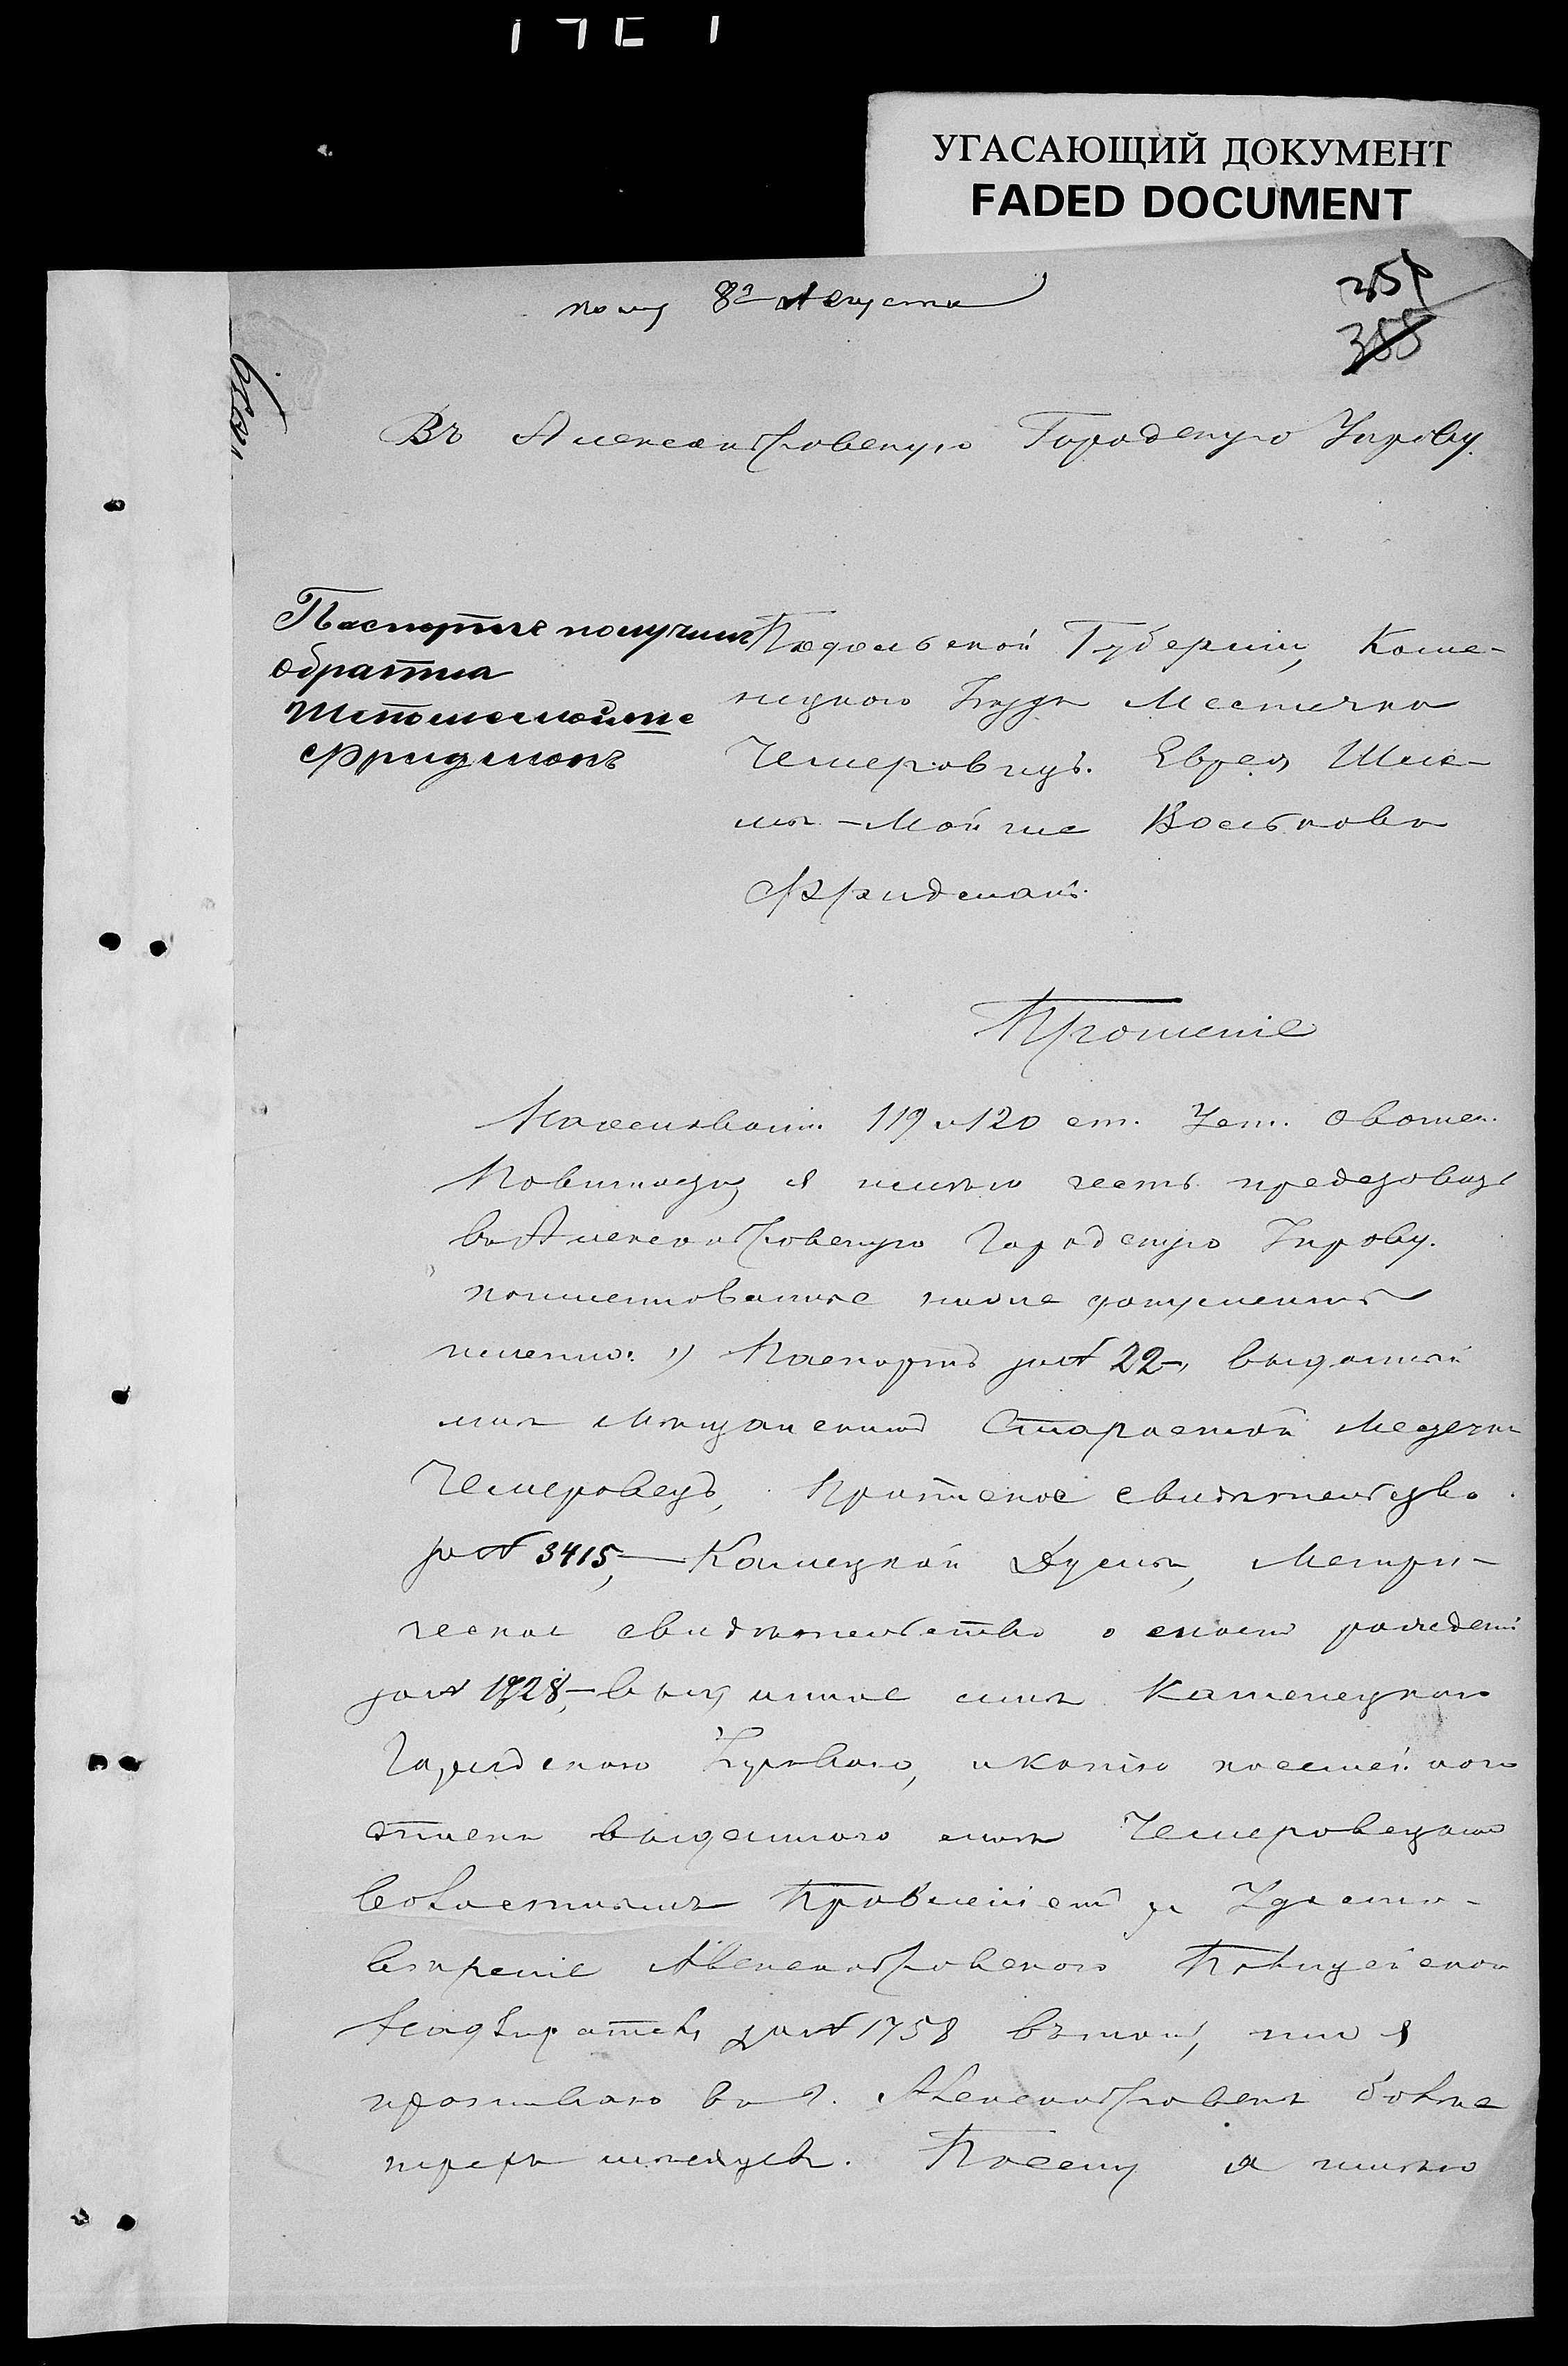 УГАСАЮЩИЙ ДОКУМЕНТ
FADED DOCUMENT
8го Августа
251
388
Въ Александровскую Городскую Управу.
Паспортъ получилъ
обратно
Фридманъ
Подольской Губерніи, Каме-
нецкого Уезда Местечка
Чемеровцъ. Еврея Шле-
мы-Мойше Волькова
Фридманъ.
Прошеніе
На основаніи 119 и 120 ст. Уст. о воин.
Повинности, я имею честь
въ Александровскую Городскую Управу.
поименованные ниже документы
именно: 1) Паспортъ за № 22-, выданный
мне Мещанскимъ Старостой Местечка
Чемеровецъ, свидетельство
за № 3415,- Каменецкой Думы, Метри-
ческое свидетельство о моемъ рожденіи
за № 1728,- выданное мне Каменецкого
Городского, и копію посемейного
списка выданного мне Чемеровецкимъ
Волостнымъ Правленіемъ и Удосто-
вереніе Александровского Полицейского
Надзирателя за № 1758 въ томъ, что я
проживаю въ г. Александровске более
трехъ месяцевъ. Посему я имею